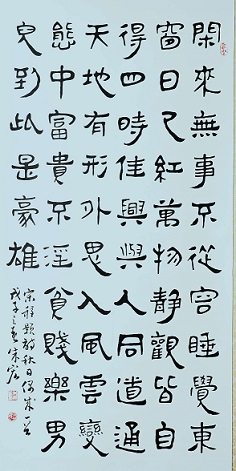 閑來無事不從容睡覺東
窗日已紅萬物靜觀皆自
得四時佳興與人同道通
天地有形外思入風雲變
態中富貴不淫貧賤樂男
兒到此是豪雄
宋程顥詩秋日偶成
戊子春